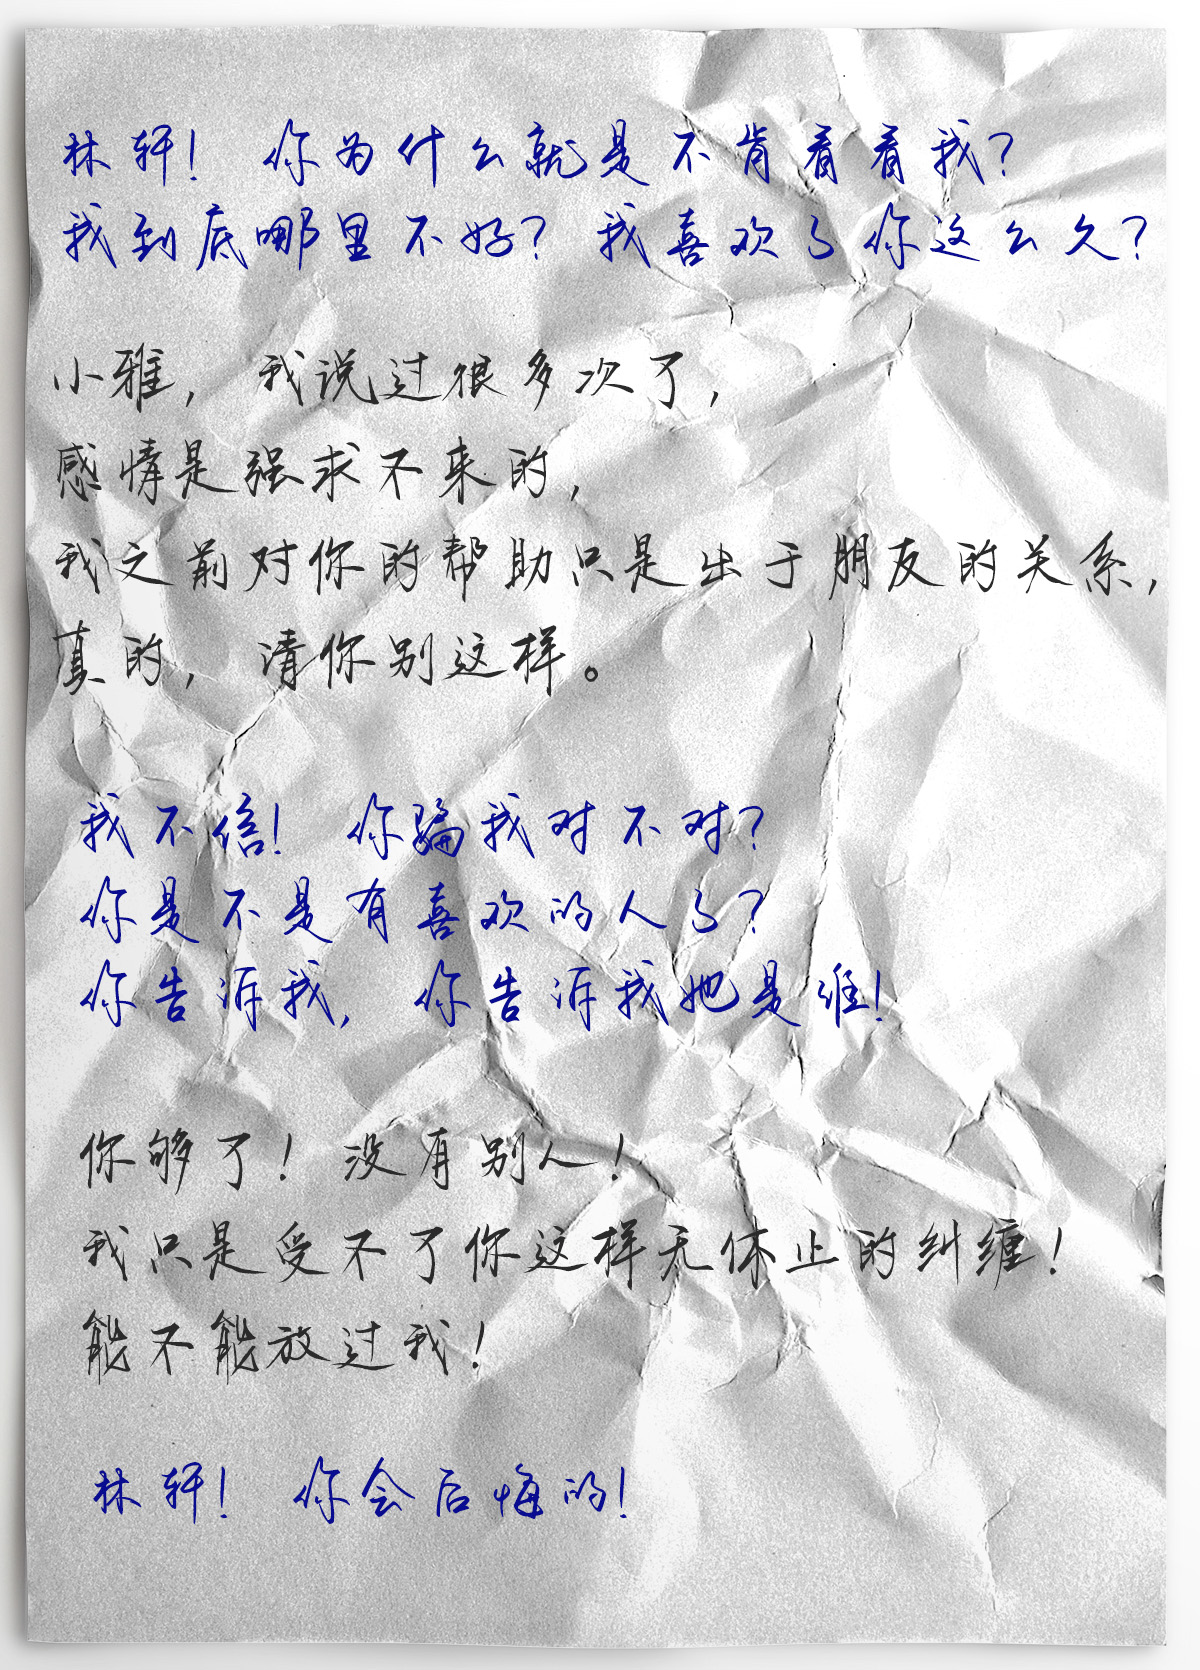 林轩！ 你为什么就是不肯看看我？
我到底哪里不好？ 我喜欢了你这么久？
小雅， 我说过很多次了，
感情是强求不来的，
我之前对你的帮助只是出于朋友的关系，
真的， 请你别这样。
我不信！ 你骗我对不对？
你是不是有喜欢的人了？
你告诉我， 你告诉我她是谁！
你够了！ 没有别人！
我只是受不了你这样无休止的纠缠！
能不能放过我！
林轩！ 你会后悔的！